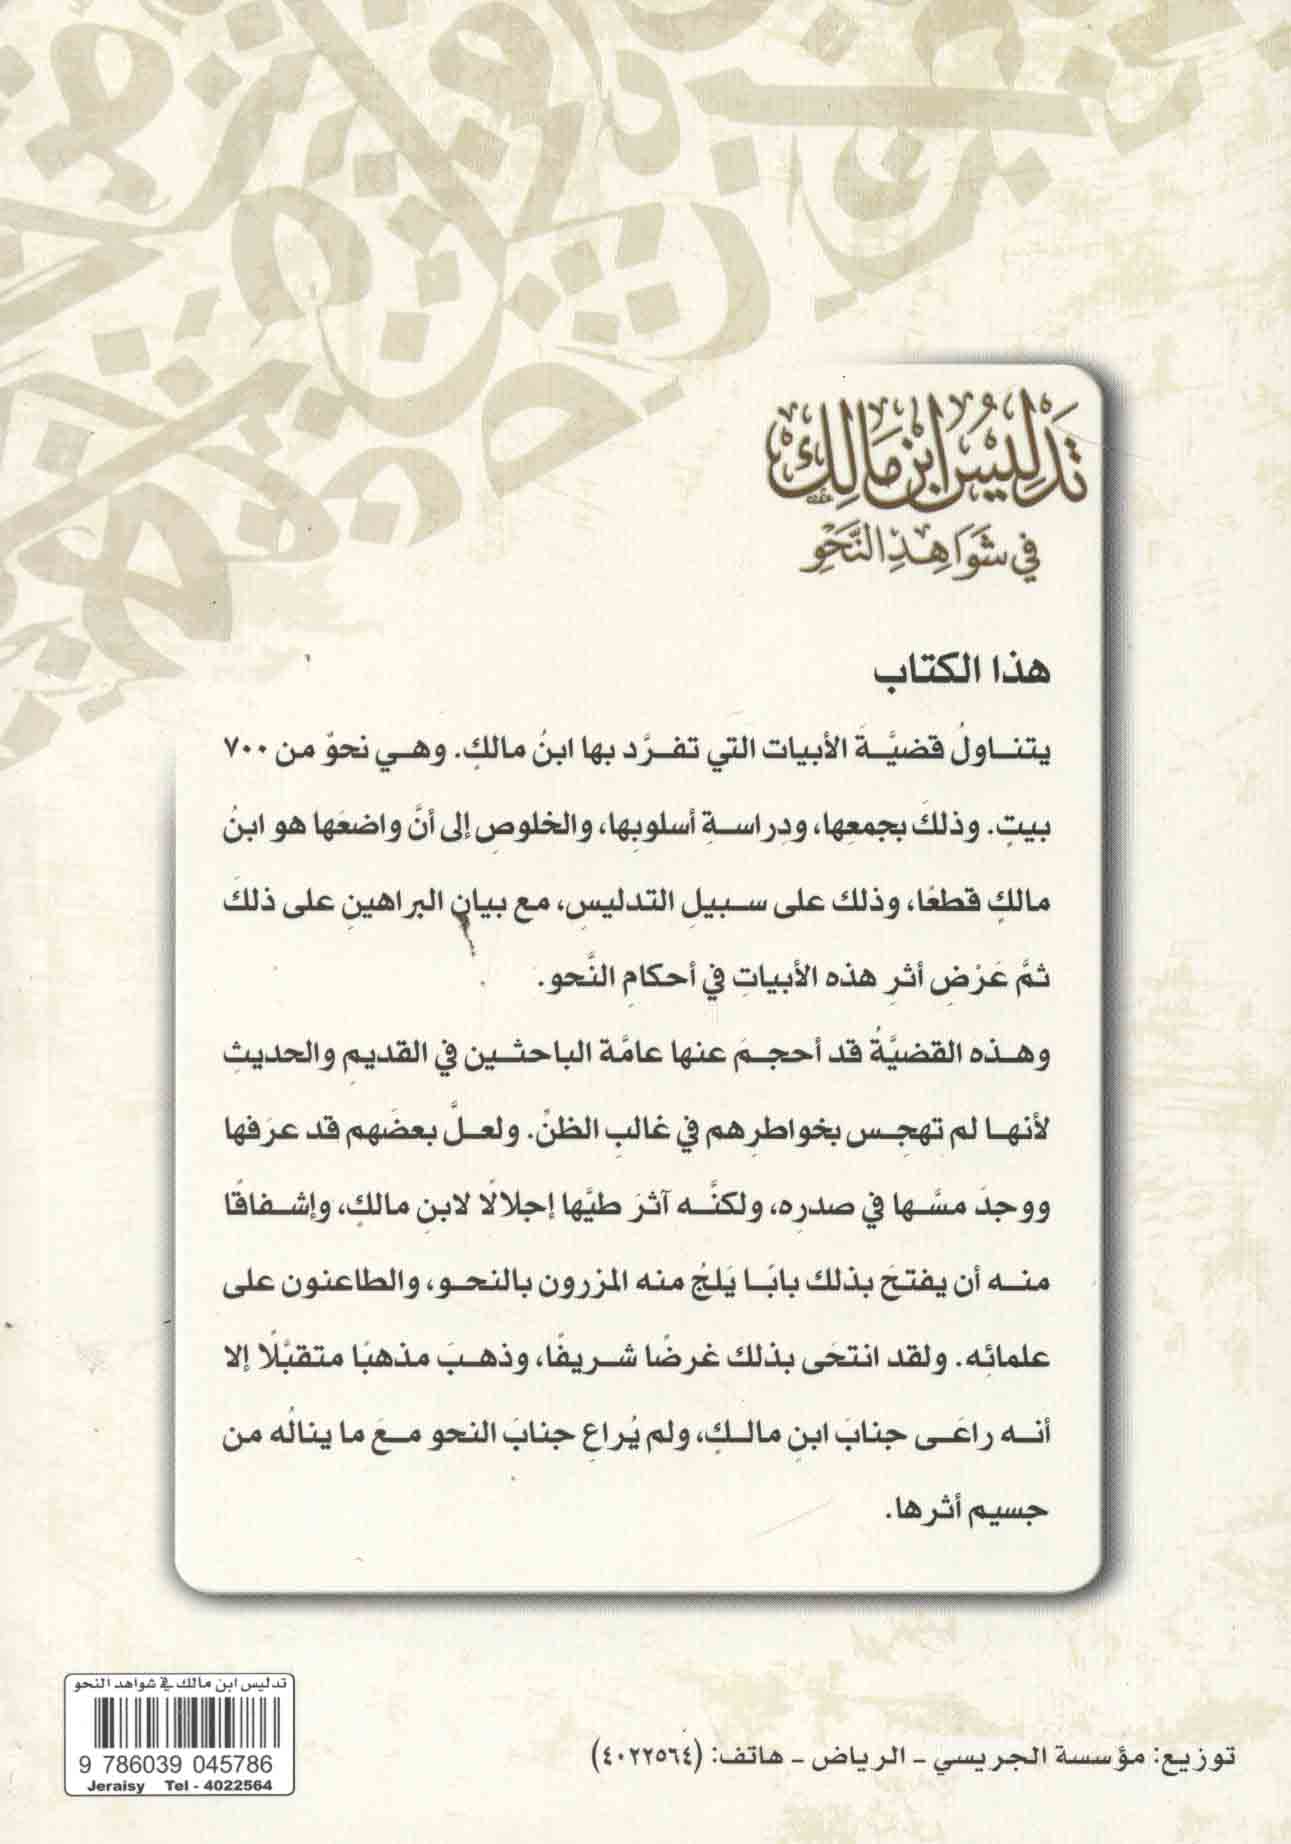 تَدْلِيسُ ابْنِ مَالِكٍ
فِي شَوَاهِدِ النَّحْوِ
هذا الكتاب
يتناولُ قضيَّةَ الأبيات التي تفرَّد بها ابنُ مالكٍ. وهي نحوٌ من ٧٠٠
بيتٍ. وذلكَ بجمعِها، ودِراسةِ أسلوبِها، والخلوصِ إلى أنَّ واضعَها هو ابنُ
مالكٍ قطعًا، وذلك على سبيلِ التدليسِ، مع بيانِ البراهينِ على ذلكَ
ثمَّ عَرْضِ أثرِ هذه الأبياتِ في أحكامِ النَّحو.
وهذه القضيَّةُ قد أحجمَ عنها عامَّة الباحثين في القديمِ والحديثِ
لأنها لم تهجِس بخواطرِهم في غالبِ الظنِّ. ولعلَّ بعضَهم قد عرَفها
ووجدَ مسَّها في صدرِه، ولكنَّه آثرَ طيَّها إجلالًا لابنِ مالكٍ، وإشفاقًا
منه أن يفتحَ بذلك بابًا يَلجُ منه المزرون بالنحو، والطاعنون على
علمائِه. ولقد انتحَى بذلك غرضًا شريفًا، وذهبَ مذهبًا متقبَّلًا إلا
أنه راعَى جنابَ ابنِ مالكٍ، ولم يُراعِ جنابَ النحو معَ ما ينالُه من
جسيم أثرها.
تدليس ابن مالك في شواهد النحو
9 786039 045786
Jeraisy Tel - 4022564
توزيع: مؤسسة الجريسي - الرياض - هاتف: (٤٠٢٢٥٦٤)